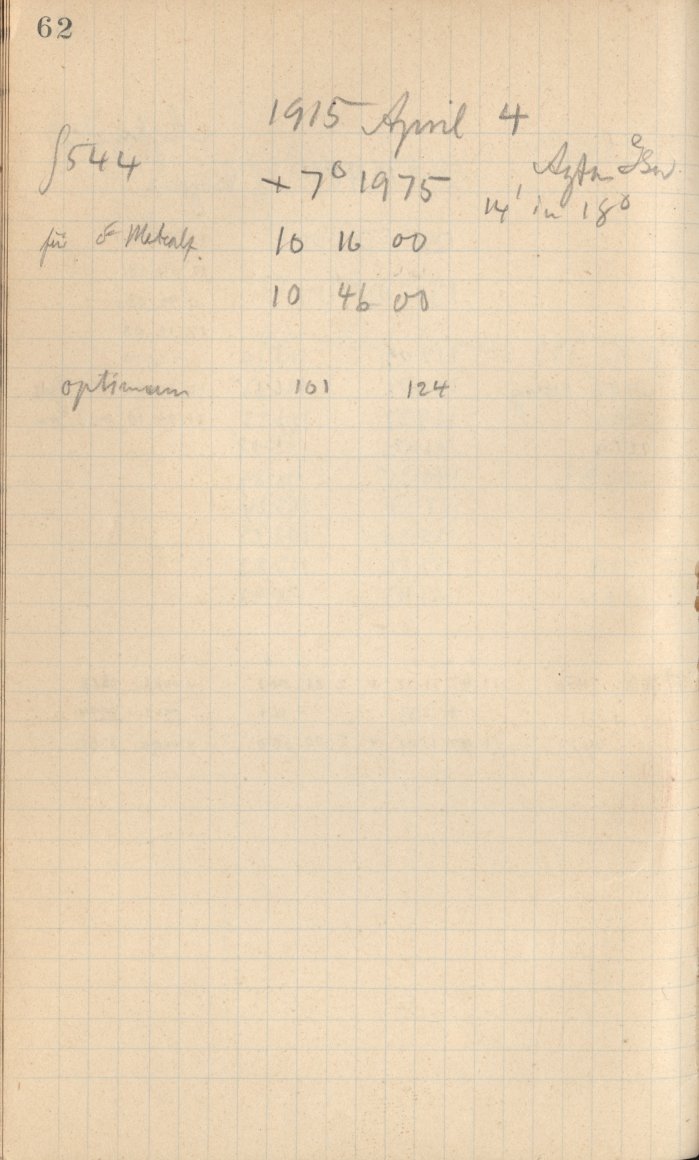 62
1915 April 4
544
+7° 1975
14' in 18°
für Metcalf
10 16 00
10 46 00
optimum 101 124